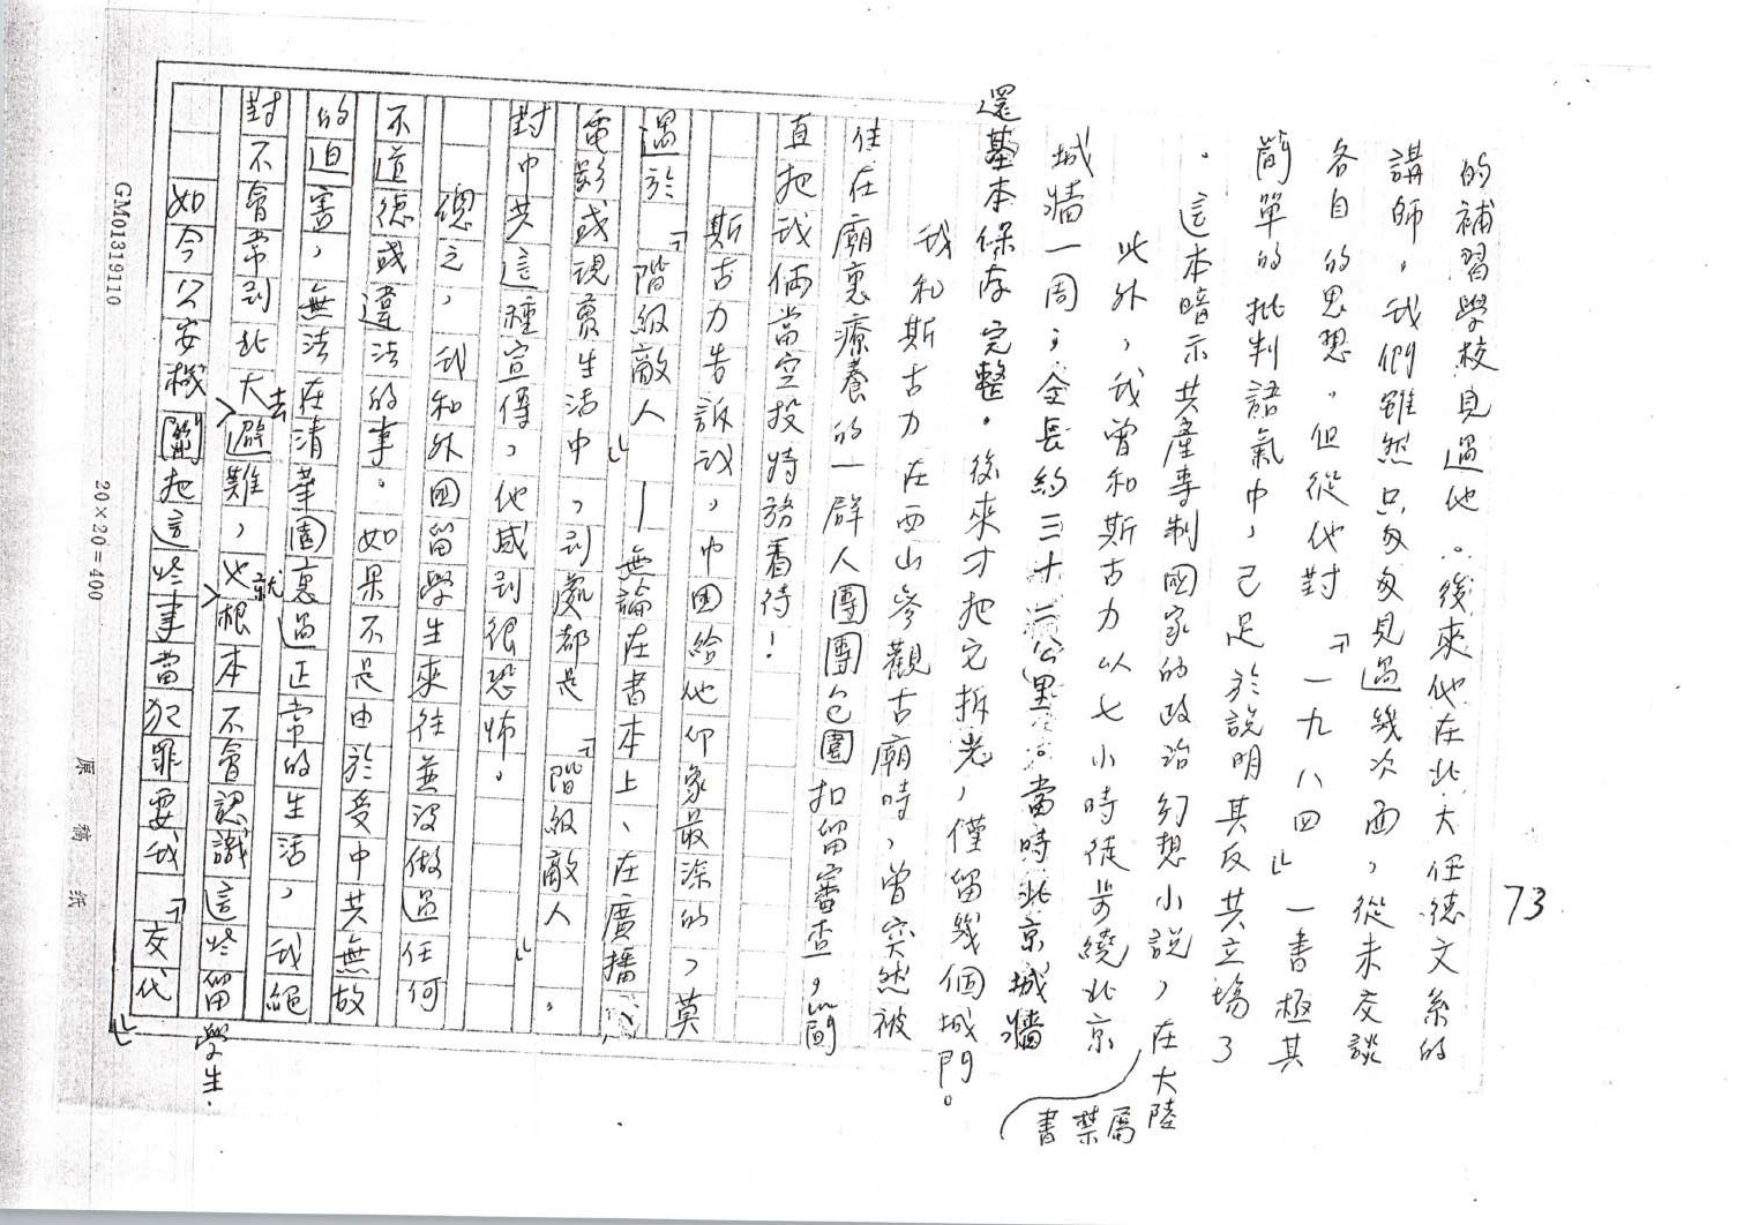 73
的補習學校見過他。後來他在北大任德文系的
講師,我們雖然只匆匆見過幾次面,從未交談
各自的思想。但從他對「一九八四」一書極其
簡單的批判語氣中,已足於說明其反共立場了
。這本暗示共產專制國家的政治幻想小說,在大陸
屬禁書
此外,我曾和斯古力以七小時徒步繞北京
城牆一周,全長約三十二公里。當時北京城牆
還基本保存完整。後來才把它拆光,僅留幾個城門。
我和斯古力在西山參觀古廟時,曾突然被
住在廟裏療養的一群人團團包圍扣留審查,簡
直把我倆當空投特務看待!
斯古力告訴我,中國給他印象最深的,莫
過於「階級敵人」—無論在書本上、在廣播、
電影或現實生活中,到處都是「階級敵人」。
對中共這種宣傳,他感到很恐怖。
總之,我和外國留學生來往並沒做過任何
不道德或違法的事。如果不是由於受中共無故
的迫害,無法在清華園裏過正常的生活,我絕
對不會常到北大去避難,也就根本不會認識這些留學生.
如今公安機關把這些事當犯罪要我「交代」
GM01319110
20×20=400
原稿紙